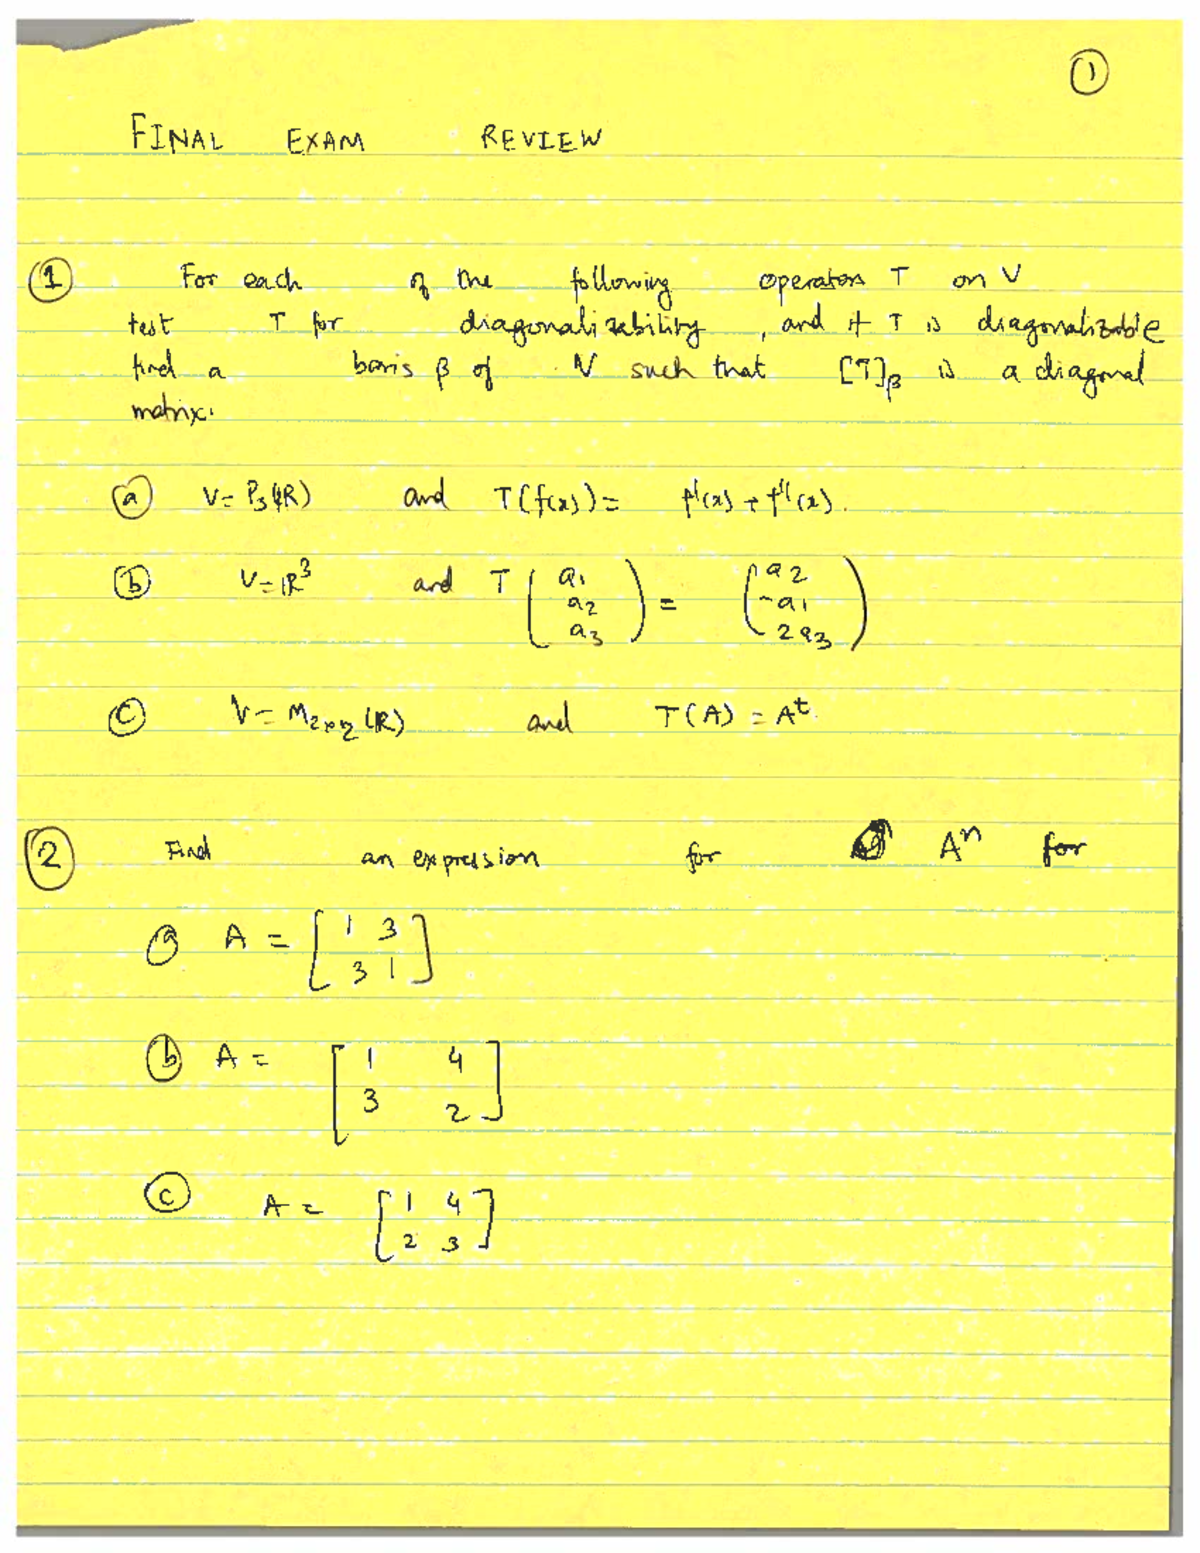 ①
FINAL EXAM REVIEW
① For each of the following operators T on V
test T for diagonalizability, and if T is diagonalizable
find a basis β of V such that [T]β is a diagonal
matrix.
ⓐ V = P₃(R) and T(f(x)) = f'(x) + f''(x).
ⓑ V = R³ and T (a₁ a₂ a₃) = (a₂ -a₁ 2a₃)
ⓒ V = M₂ₓ₂(R) and T(A) = Aᵗ.
② Find an expression for Aⁿ for
ⓐ A = [1 3
3 1]
ⓑ A = [1 4
3 2]
ⓒ A = [1 4
2 3]